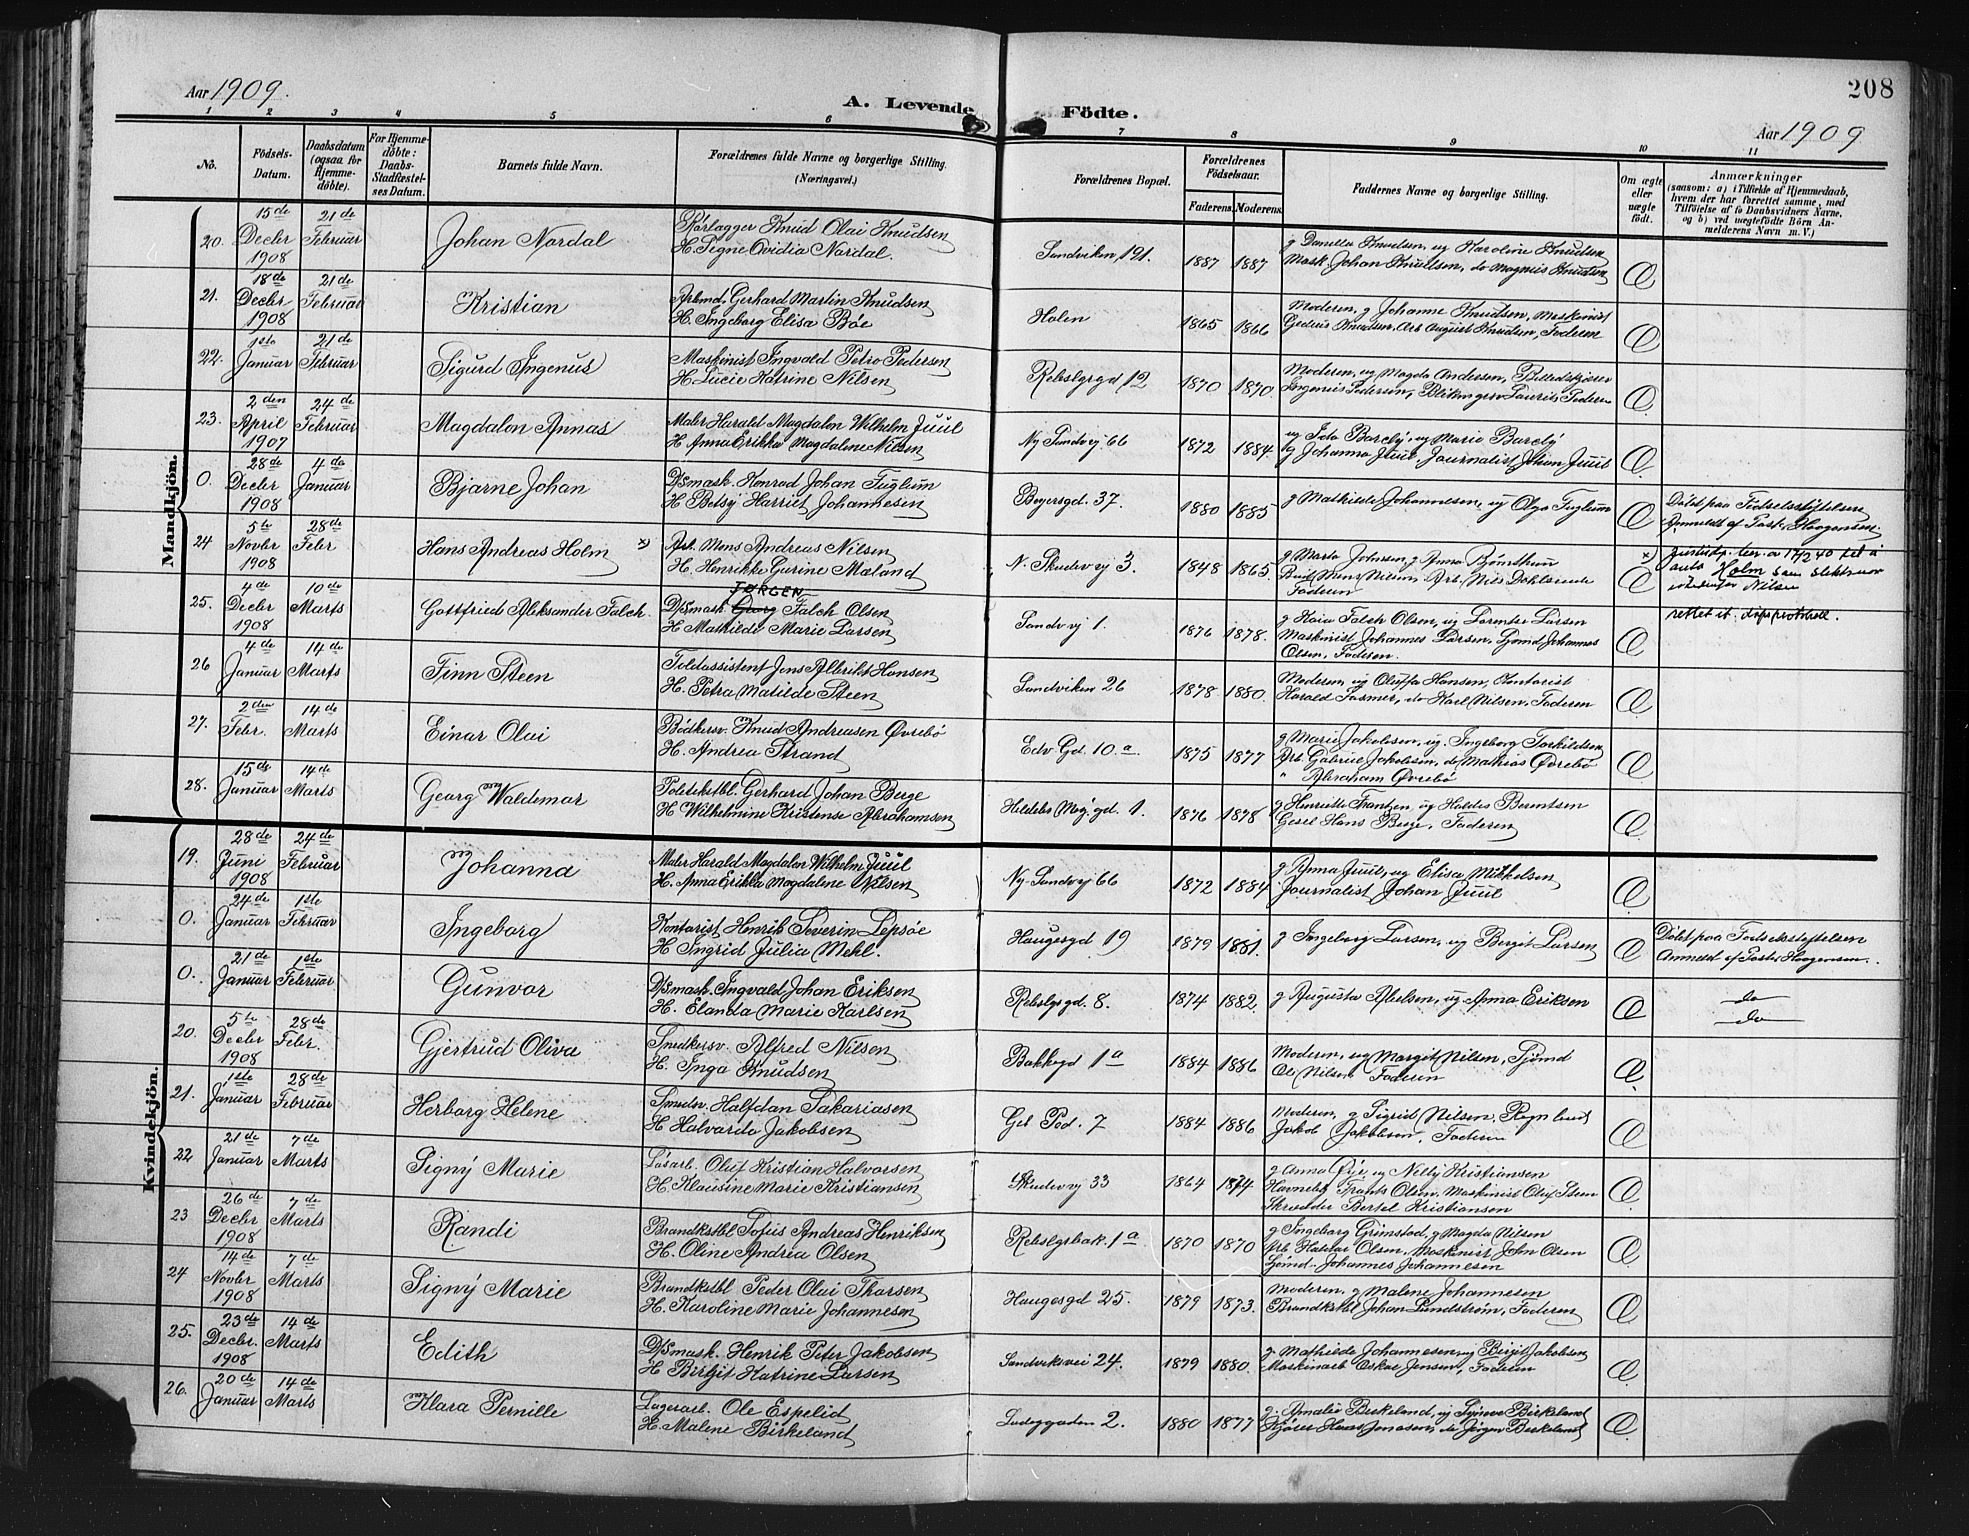 208
Aar 1909.
A. Levende Födte.
Aar 1909
1 2 3 4 5 6 7 8 9 10 11
No.
Födsels-Datum.
Daabsdatum (ogsaa for Hjemmedöbte).
For Hjemmedöbte: Daabs-Stadfæstelses Datum.
Barnets fulde Navn.
Forældrenes fulde Navne og borgerlige Stilling. (Næringsvei.)
Forældrenes Bopæl.
Forældrenes Födselsaar.
Faderens. Moderens.
Faddernes Navne og borgerlige Stilling.
Om ægte eller uægte födt.
Anmærkninger
(saasom: a) i Tilfælde af Hjemmedaab, hvem der har forrettet samme, med Tilföielse af to Daabsvidners Navne, og b) ved uægtefödte Börn Anmelderens Navn m. V.)
Mandkjön.
20. 15de Decbr 1908 21de Februar Johan Nordal
Rørlægger Knud Olai Knudsen
H. Signe Ovidia Nordal.
Sandviken 191. 1887 1887
g Daniella Knudsen, ug Karoline Knudsen
Mask. Johan Knudsen, do Magnus Knudsen
Æ
21. 18de Decbr 1908 21de Februar Kristian
Arbmd. Gerhard Martin Knudsen
H. Ingeborg Elisa Bøe
Holen 1865 1866
Moderen, g Johanne Knudsen, Maskinist
Knudsen, Arb August Knudsen, Faderen
Æ
22. 1ste Januar 21de Februar Sigurd Ingenus
Maskinist Ingvald Petro Pedersen
H. Lucie Katrine Nilsen
Rebslgrgd 12 1870 1870
Moderen, ug Magda Andersen, Billedskjærer
Ingenius Pedersen, Blikingrsv Laurits Faderen
Æ
23. 2den April 1907 24de Februar Magdalon Annas
Maler Harald Magdalon Wilhelm Juul
H Anna Erikka Magdalene Nilsen
Ny Sandvj 66 1872 1884.
ug Ida Barely, ug Marie Barely
g Johanna Juul, Journalist Johan Juul
Æ
0. 28de Decbr 1908 4de Januar Bjarne Johan
D/Smask. Konrad Johan Fuglum
H Betsy Harriet Johannesen
Bøyersgd. 37. 1880 1885
g Mathilde Johannesen, ug Olga Fuglum
Æ
Døbt paa Fødselsstiftelsen
Anmeldt af Jordm. Haagensen
24 5te Novbr 1908 28de Febr Hans Andreas Holm x)
Arb. Mons Andreas Nilsen
H. Henrikke Gurine Mæland
N. Skudevj 3. 1848 1865.
g Marta Johnsen, g Anna
Nilsen, Arb. Nils
Faderen
Æ
x) Justisdp. bev. av 17/2 40 til å
anta Holm som slektsnavn
istedenfor Nilsen
25. 4de Decbr 1908 10de Marts Gottfried Aleksander Falch.
JØRGEN
D/Smask. Georg Falch Olsen
H Mathilde Marie Larsen
Sandvj 1. 1876 1878.
g Kaia Falch Olsen, ug Lorentse Larsen
Maskinist Johannes Larsen, Sjømd Johannes
Olsen, Faderen.
Æ
rettet it. dåpsprotokoll.
26 4de Januar 14de Marts Finn Steen
Toldassistent Jens Albrikt Hansen
H. Petra Matilde Steen
Sandviken 26 1878 1880.
Moderen, ug Oluffa Hansen, Kontorist
Harald Fasmer, do Karl Nilsen, Faderen
Æ
27. 2den Febr. 14de Marts Einar Olai
Bødkersv. Knud Andreasen Øvrebø
H. Andrea Strand
Edv Gd. 10 a. 1875 1877
g Marie Jakobsen, ug. Ingeborg Torkildsen
Arb. Gabriel Jakobsen, do Mathias Øvrebø
" Abraham Øvrebø
Æ
28. 15de Januar 14de Marts Georg Waldemar
Politikstbl. Gerhard Johan Berge
H Wilhelmine Kristense Abrahamsen
Hildebr Mog. gd. 1. 1876 1878
g Henriette Frantzen, ug Haldis Berntsen
Gesel Hans Berge, Faderen
Æ
Kvindekjön.
19. 28de Juni 1908 24de Februar Johanna
Maler Harald Magdalon Wilhelm Juul
H. Anna Erikka Magdalene Nilsen
Ny-Sandvj 66 1872 1884
g Anna Juul, ug Elisa Mikkelsen
Journalist Johan Juul
Æ
0. 24de Januar 1ste Februar Ingeborg
Kontorist Henrik Severin Lepsøe
H Ingrid Julia Mehl.
Haugesgd 19 1879 1881.
g Ingeborg Larsen, ug Bergit Larsen
Æ
Døbt paa Fødselsstiftelsen
Anmeldt af Jordm Haagensen.
0. 21de Januar 1ste Februar Gunvor
D/Smask. Ingvald Johan Eriksen
H. Elanda Marie Karlsen
Rebslgsgd 8. 1874 1882
g Augusta Abelsen, ug Anna Eriksen
Æ
do
do
20. 5te Decbr 1908 28de Febr. Gjertrud Oliva
Snedkersv. Alfred Nilsen
H. Inga Knudsen
Bakkegd 1a 1884 1886
Moderen, ug Margit Nilsen, Sjømd
Ole Nilsen Faderen
Æ
21. 1ste Januar 28de Februar Herborg Helene
Smedsv. Halfdan Sakariasen
H Halvarda Jakobsen
Gel Ped. 7 1884 1886
Moderen, g Sigrid Nilsen,
Jakob Jakobsen, Faderen
Æ
22 21de Januar 7de Marts Signy Marie
Løsarb. Oluf Kristian Halvorsen
H. Klausine Marie Kristiansen
Skudevj 33 1864 1874
g Anna Øye ug Nelly Kristiansen
Havnebtj Frants Olsen, Maskinist Oluf Steen
Skrædder Bertel Kristiansen
Æ
23 26de Decbr 1908 7de Marts Randi
Brandkstbl Sofus Andreas Henriksen
H. Oline Andrea Olsen
Rebslgrbak. 1a 1870 1870
g Ingeborg Grimstad, g Magda Nilsen
Arb Haldor Olsen, Maskinist John Olsen
Sømd. Johannes Johannesen
Æ
24 14de Novbr 1908 7de Marts Signy Marie
Brandkstbl Peder Olai Thorsen
H. Karoline Marie Johannesen
Haugesgd 25. 1879 1873.
Moderen, g Malene Johannesen
Brandkstbl Johan Lundstrøm, Faderen
Æ
25. 23de Decbr. 1908 14de Marts Edith
D/Smask. Henrik Peter Jakobsen
H Birgit Katrine Larsen
Sandviksvei 24. 1879 1880.
g. Mathilde Johannesen, ug Birgit Jakobsen
Maskinarb Oskar Jensen, Faderen
Æ
26. 20de Januar 14de Marts Klara Pernille
Lagerarb. Ole Espelid
H. Malene Birkeland
Ladegaarden 2. 1880 1877
g. Amalie Birkeland, ug Synøve Birkeland
Kjører Hans Jonassen, do Jørgen Birkeland
Æ